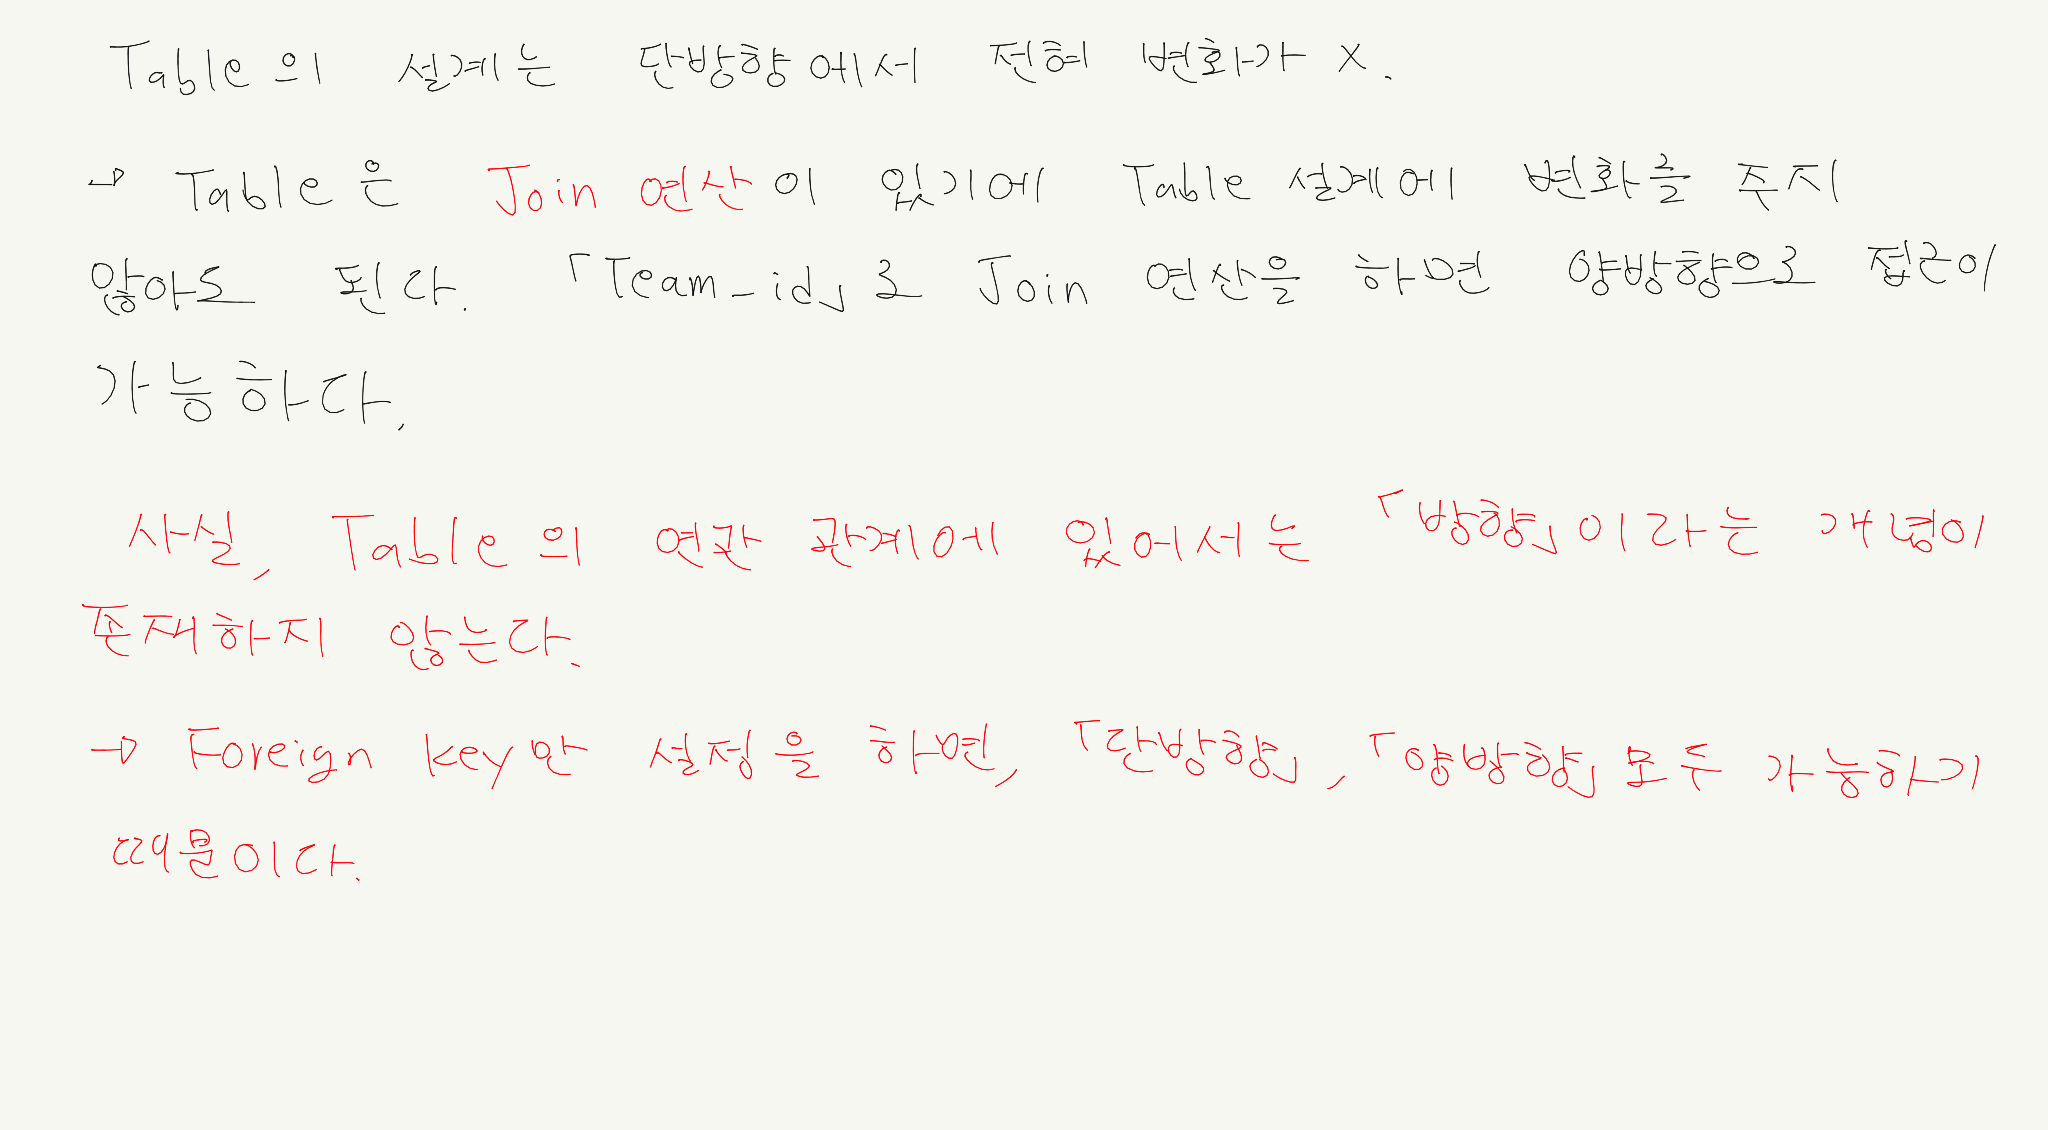 Table의 설계는 단방향에서 전혀 변화가 X.
→ Table은 Join 연산이 있기에 Table 설계에 변화를 주지
않아도 된다. 「Team_id」로 Join 연산을 하면 양방향으로 접근이
가능하다.
사실, Table의 연관 관계에 있어서는 「방향」이라는 개념이
존재하지 않는다.
→ Foreign key만 설정을 하면, 「단방향」, 「양방향」 모두 가능하기
때문이다.